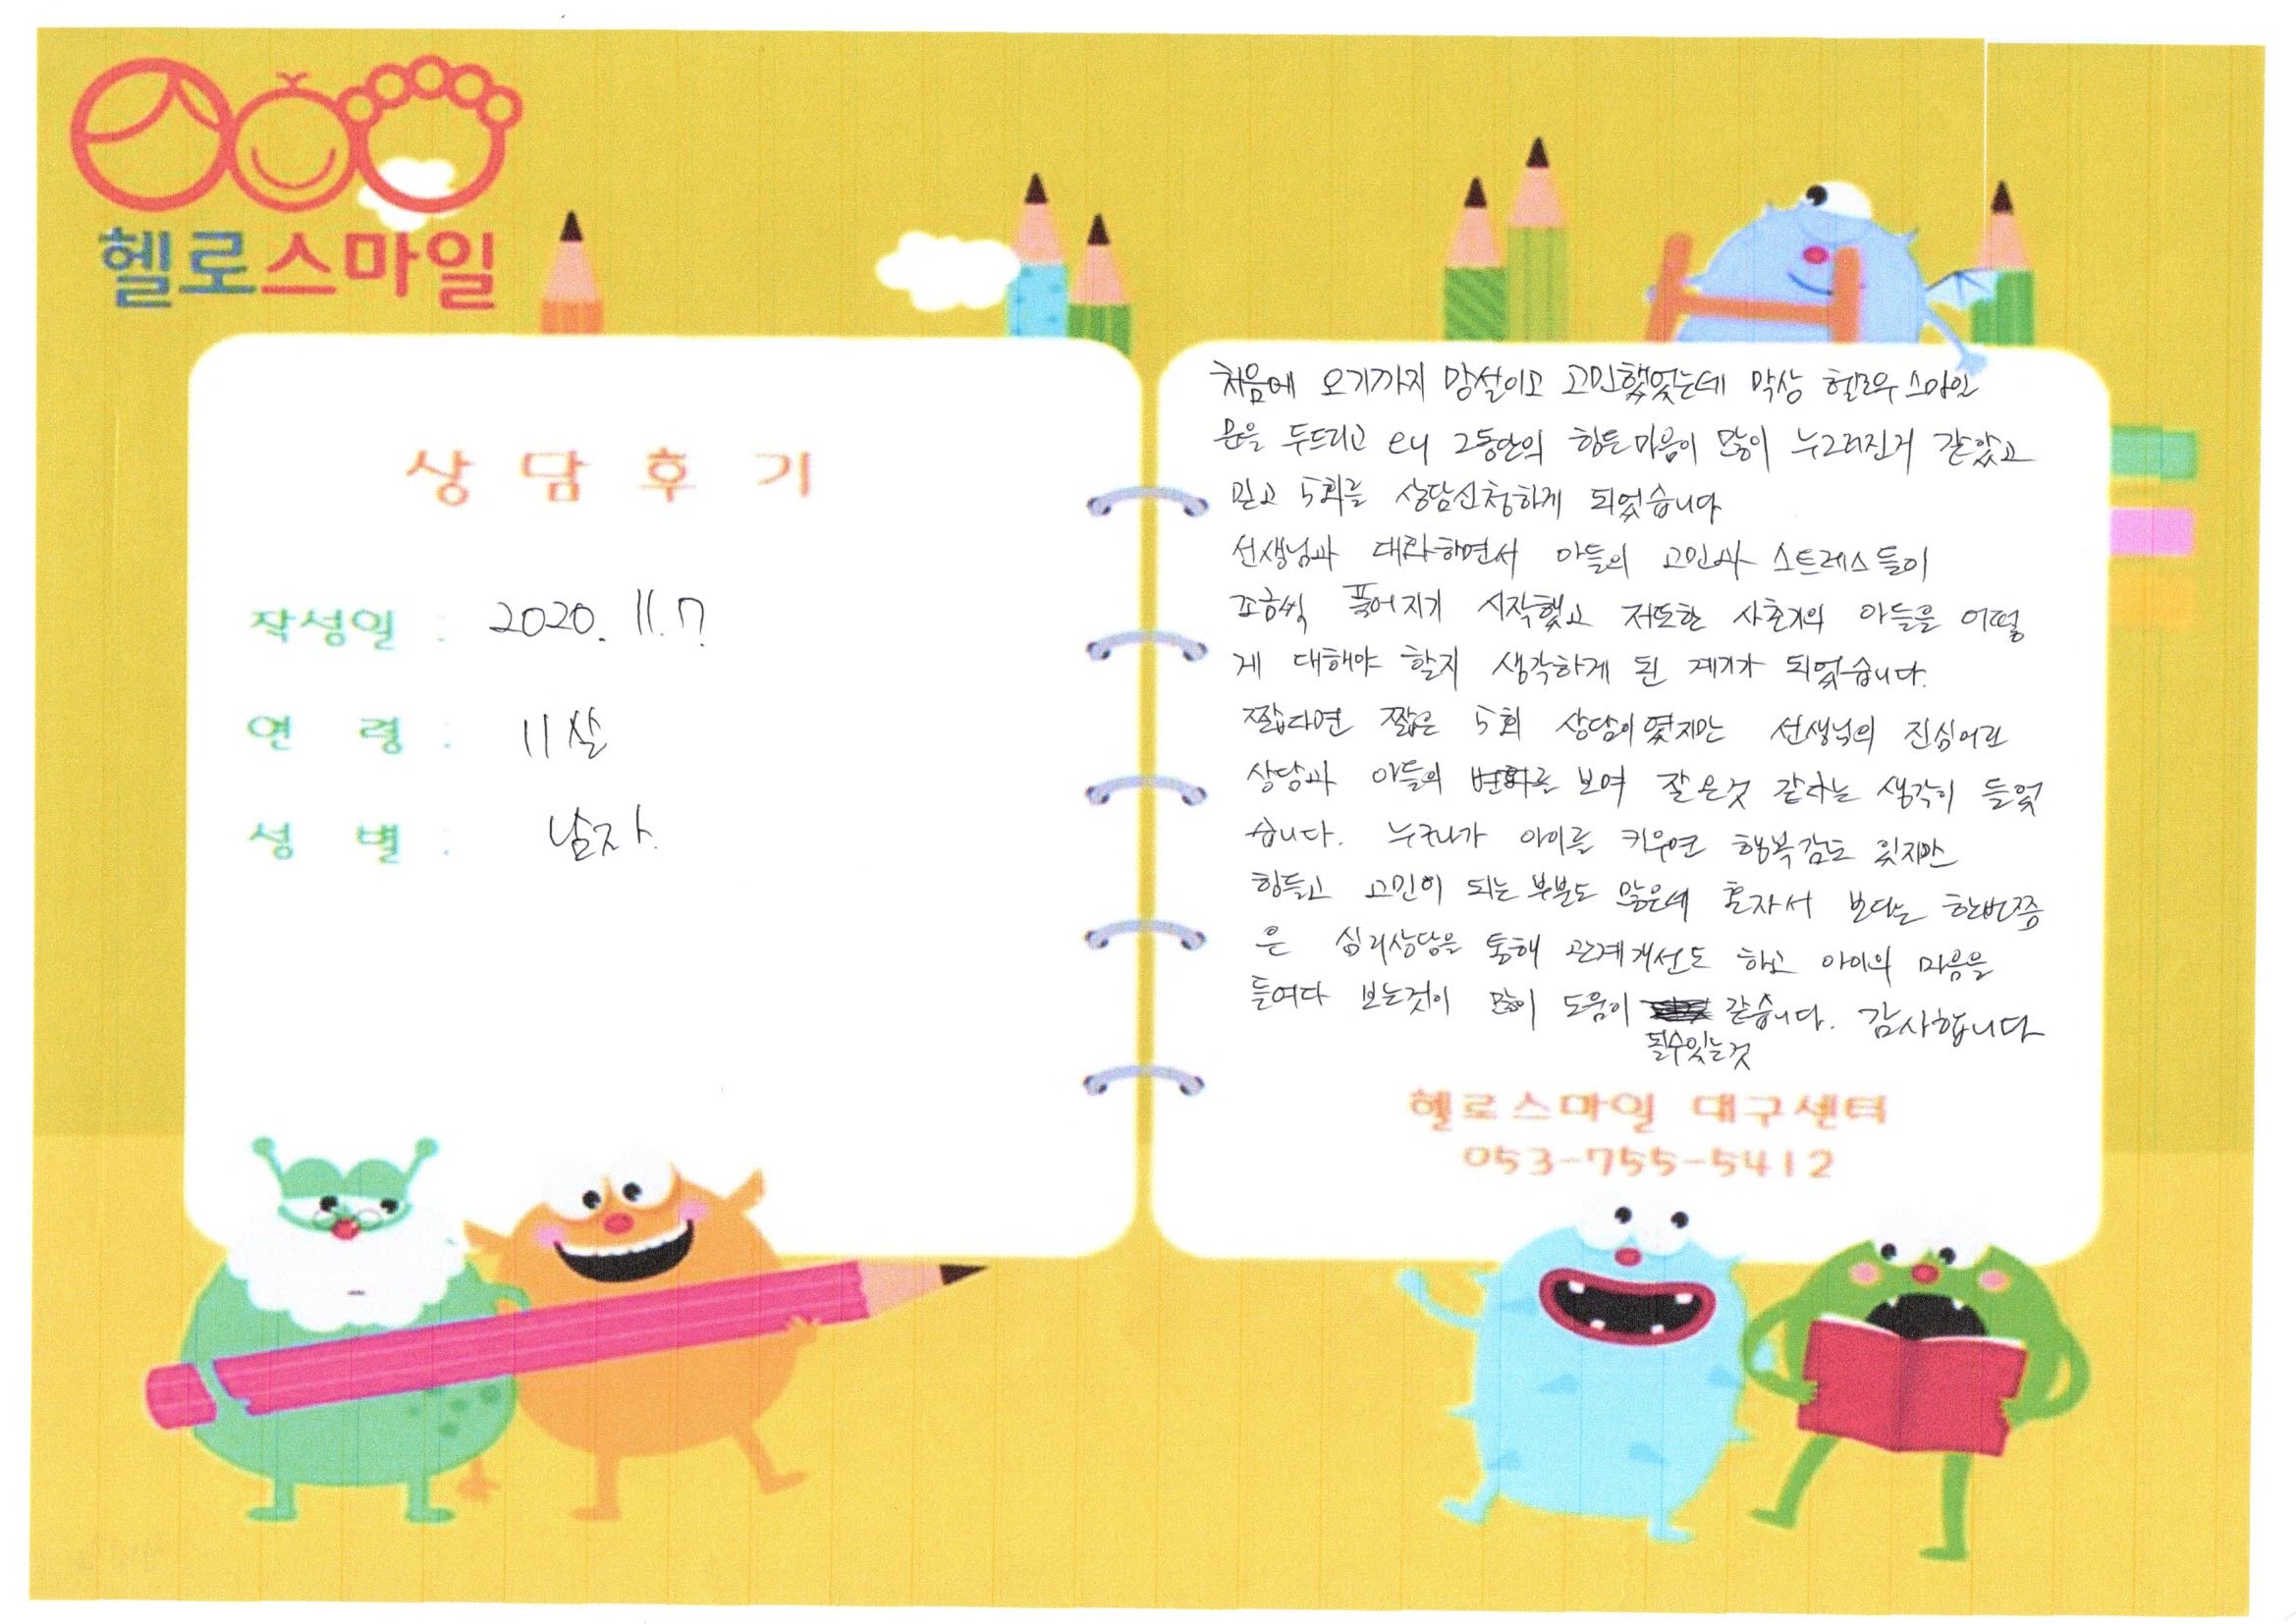 헬로스마일
상 담 후 기
작성일 : 2020. 11. 7
연 령 : 11살
성 별 : 남자.
처음에 오기까지 망설이고 고민했었는데 막상 헬로우스마일
문을 두드리고 그동안의 힘든마음이 많이 누그러진거 같았고
믿고 5회를 상담신청하게 되었습니다
선생님과 대화하면서 아들의 고민과 스트레스들이
조금씩 풀어지기 시작했고 저또한 사춘기의 아들을 어떻
게 대해야 할지 생각하게 된 계기가 되었습니다.
짧다면 짧은 5회 상담이였지만 선생님의 진심어린
상담과 아들의 변화를 보여 잘은것 같다는 생각이 들었
습니다. 누구나가 아이를 키우면 행복감도 있지만
힘들고 고민이 되는 부분도 많은데 혼자서 보다는 한번쯤
은 심리상담을 통해 관계개선도 하고 아이의 마음을
들여다 보는것이 많이 도움이 같습니다. 감사합니다
될수있는것
헬로스마일 대구센터
053-755-5412